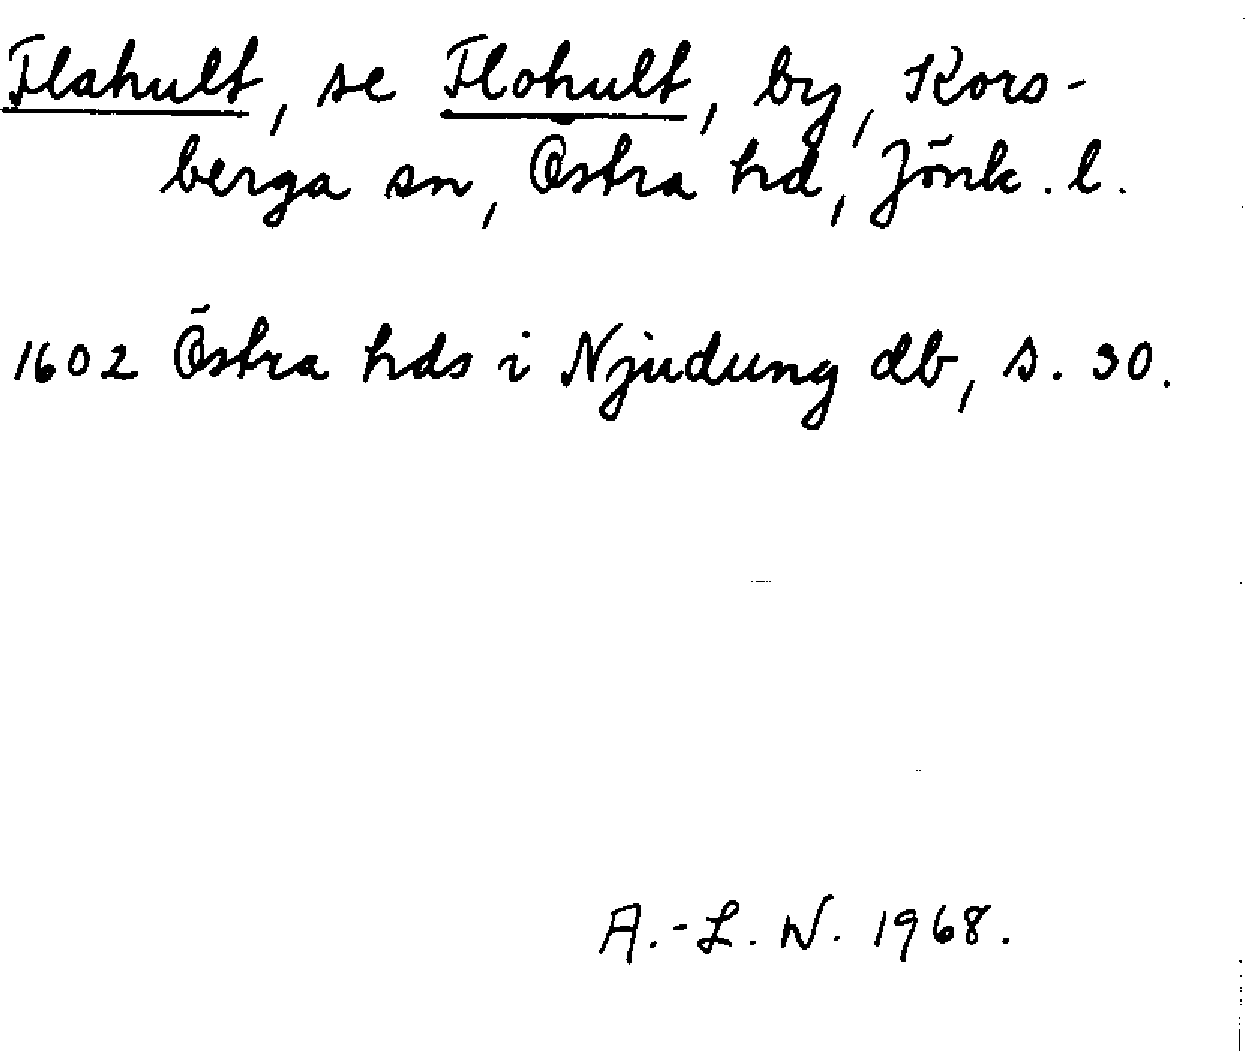 Flahult, se Flohult, by, Kors-
berga sn, Östra hd, Jönk. l.
1602 Östra hds i Njudung db, s. 30.
A.-L. N. 1968.